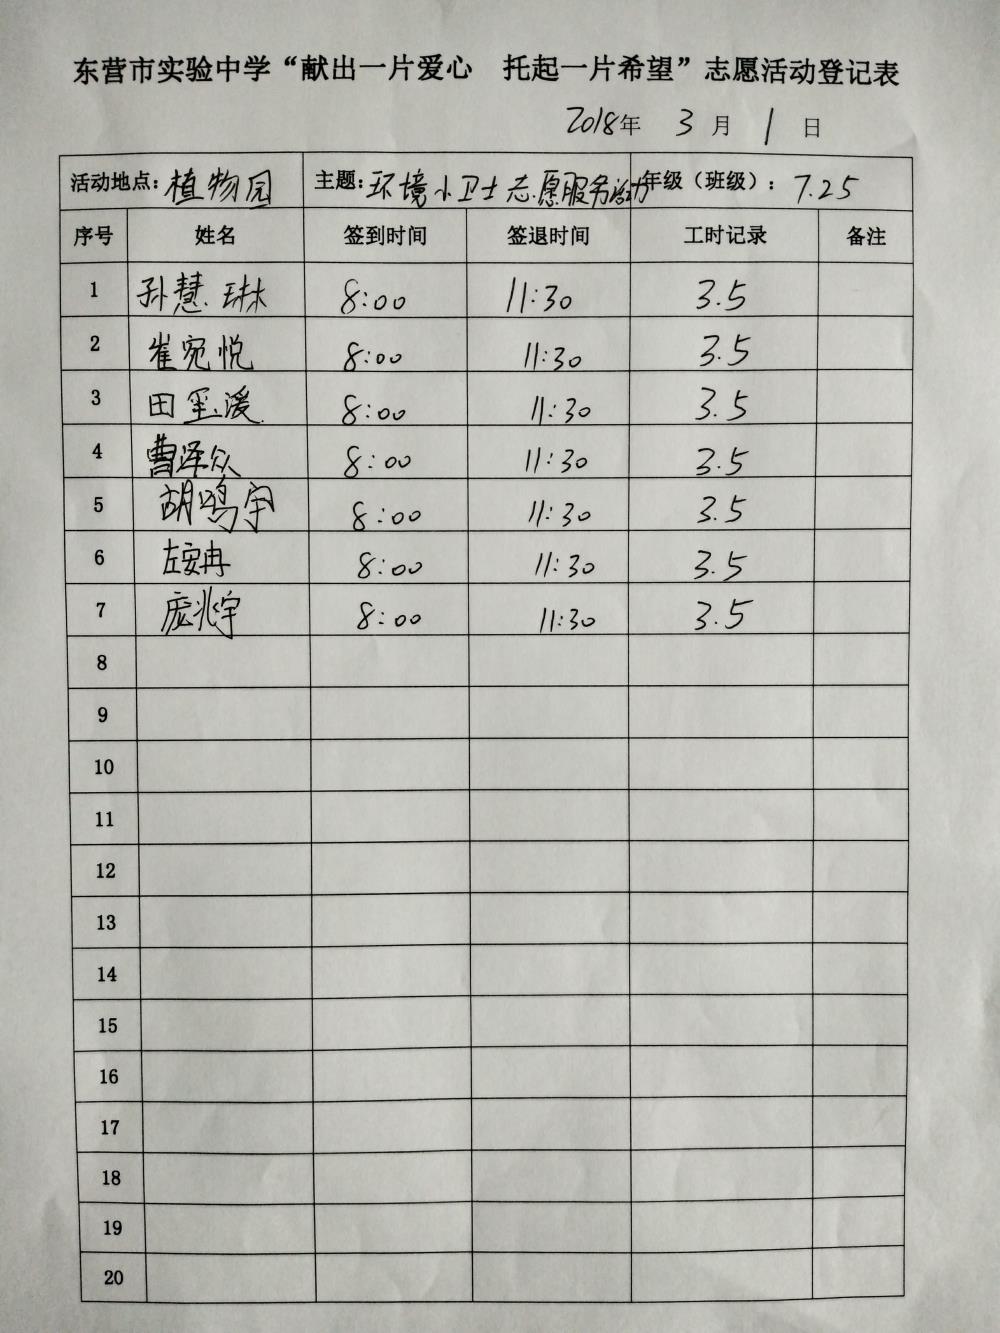 东营市实验中学“献出一片爱心 托起一片希望”志愿活动登记表
2018年 3 月 1 日
活动地点：植物园 主题：环境小卫士志愿服务活动 年级（班级）：7.25
序号 姓名 签到时间 签退时间 工时记录 备注
1 孙慧琳 8:00 11:30 3.5
2 崔宛悦 8:00 11:30 3.5
3 田玺湲 8:00 11:30 3.5
4 曹泽众 8:00 11:30 3.5
5 胡鸣宇 8:00 11:30 3.5
6 左安冉 8:00 11:30 3.5
7 庞兆宇 8:00 11:30 3.5
8
9
10
11
12
13
14
15
16
17
18
19
20